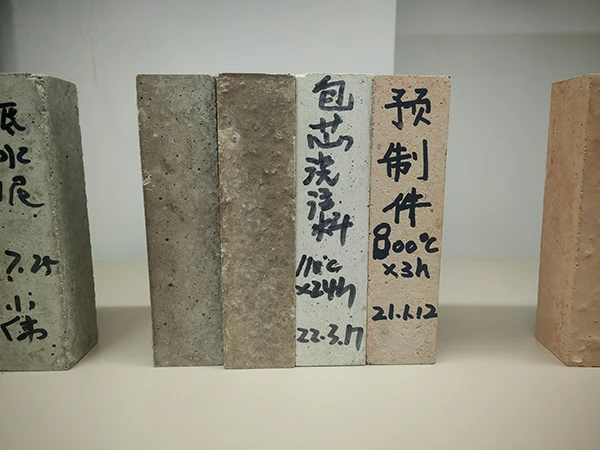 低
水
泥
7.25
小
伟
包
芯
浇
注
料
110℃
×24h
22.3.17
预
制
件
800℃
×3h
21.1.12